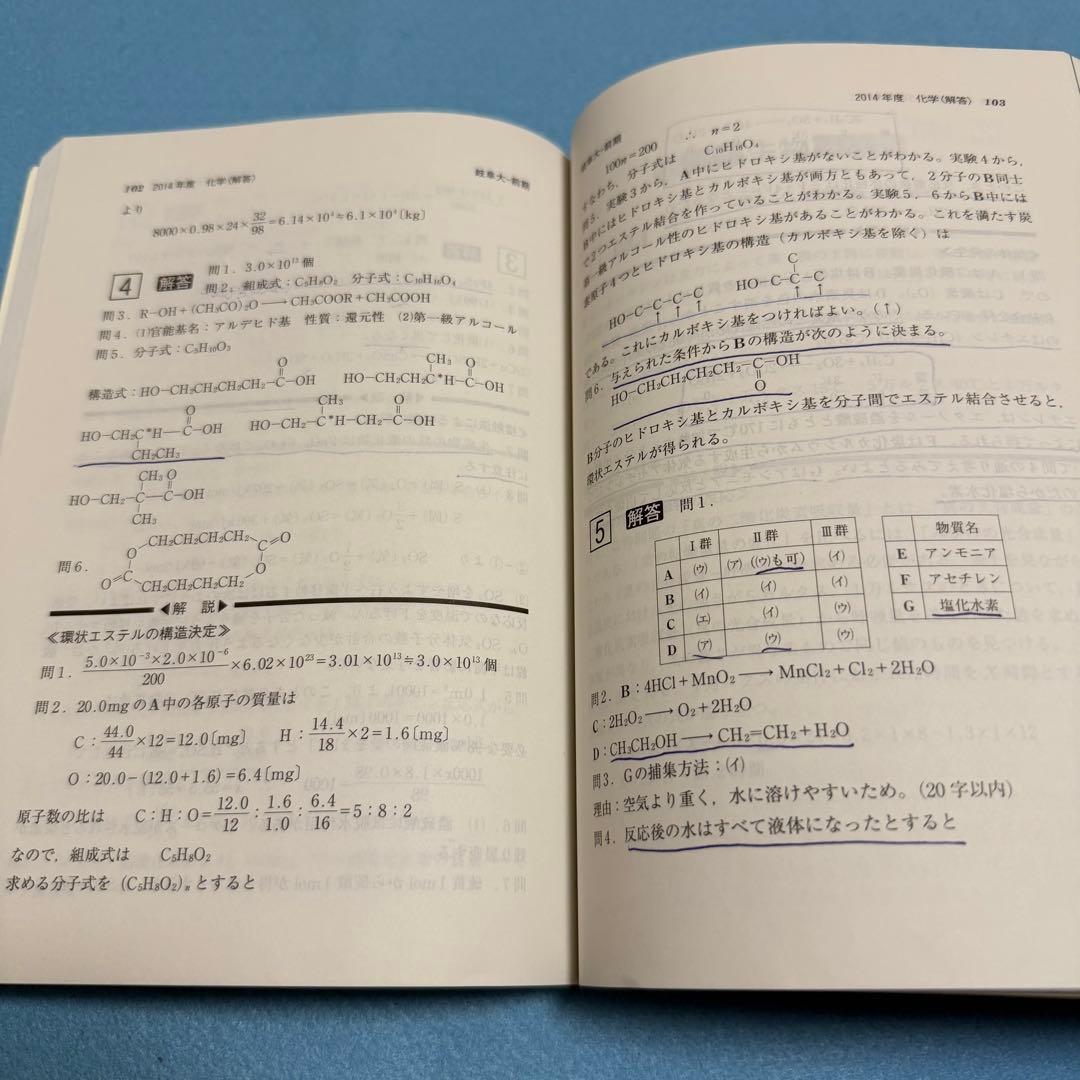 102 2014年度 化学〈解答〉
岐阜大-前期
より
8000×0.98×24×32/98=6.14×10⁴≒6.1×10⁴〔kg〕
4 解答 問1. 3.0×10¹³個
問2. 組成式：C₅H₈O₂ 分子式：C₁₀H₁₆O₄
問3. R-OH+(CH₃CO)₂O⟶CH₃COOR+CH₃COOH
問4. (1)官能基名：アルデヒド基 性質：還元性 (2)第一級アルコール
問5. 分子式：C₅H₁₀O₃
構造式：HO-CH₂CH₂CH₂CH₂-C-OH
O
HO-CH₂CH₂C*H-C-OH
CH₃ O
HO-CH₂C*H—C-OH
O
CH₂CH₃
HO-CH₂-C*H-CH₂-C-OH
CH₃ O
HO-CH₂-C—C-OH
CH₃ O
CH₃
問6.
O CH₂CH₂CH₂CH₂ C=O
O=C CH₂CH₂CH₂CH₂ O
◀解 説▶
≪環状エステルの構造決定≫
問1. 5.0×10⁻³×2.0×10⁻⁶/200×6.02×10²³=3.01×10¹³≒3.0×10¹³個
問2. 20.0mgのA中の各原子の質量は
C：44.0/44×12=12.0〔mg〕 H：14.4/18×2=1.6〔mg〕
O：20.0-(12.0+1.6)=6.4〔mg〕
原子数の比は C：H：O=12.0/12：1.6/1.0：6.4/16=5：8：2
なので，組成式は C₅H₈O₂
求める分子式を (C₅H₈O₂)ₙとすると
2014年度 化学〈解答〉 103
岐阜大-前期
100n=200 ∴ n=2
すなわち，分子式は C₁₀H₁₆O₄
問5. 実験3から，A中にヒドロキシ基がないことがわかる。実験4から，
B中にはヒドロキシ基とカルボキシ基が両方ともあって，2分子のB同士
で2つエステル結合を作っていることがわかる。実験5，6からB中には
第一級アルコール性のヒドロキシ基があることがわかる。これを満たす炭
素原子4つとヒドロキシ基の構造（カルボキシ基を除く）は
HO-C-C-C-C
↑ ↑ ↑ ↑
C
HO-C-C-C
↑ ↑
である。これにカルボキシ基をつければよい。(↑)
問6. 与えられた条件からBの構造が次のように決まる。
HO-CH₂CH₂CH₂CH₂-C-OH
O
B分子のヒドロキシ基とカルボキシ基を分子間でエステル結合させると，
環状エステルが得られる。
5 解答 問1.
Ⅰ群 Ⅱ群 Ⅲ群
A (ウ) (ア)((ウ)も可) (イ)
B (イ) (イ) (イ)
C (エ) (イ) (ウ)
D (ア) (ウ) (ウ)
物質名
E アンモニア
F アセチレン
G 塩化水素
問2. B：4HCl+MnO₂⟶MnCl₂+Cl₂+2H₂O
C：2H₂O₂⟶O₂+2H₂O
D：CH₃CH₂OH⟶CH₂=CH₂+H₂O
問3. Gの捕集方法：(イ)
理由：空気より重く，水に溶けやすいため。(20字以内)
問4. 反応後の水はすべて液体になったとすると